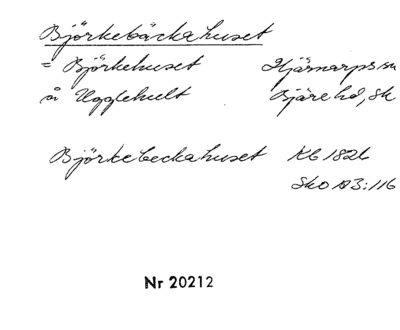 Björkebäckahuset
= Björkehuset Hjärnarps sn
å Ugglehult Bjäre hd, Sk
Björkebeckahuset Kb 1826
Sko A3:116
Nr 20212